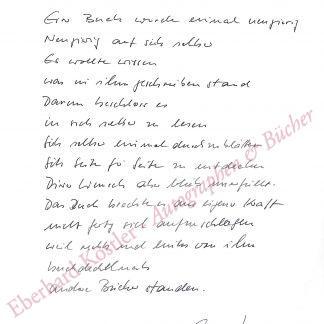 Ein Buch wurde einmal neugierig
Neugierig auf sich selber
Es wollte wissen
was in ihm geschrieben stand
Darum beschloss es
in sich selber zu lesen
Sich selber einmal durchzublättern
Sich Seite für Seite zu entdecken
Dieser Wunsch aber blieb unerfüllt.
Das Buch brachte aus eigner Kraft
nicht fertig sich aufzuschlagen
weil rechts und links von ihm
buchdeckelnah
andere Bücher standen.
Eberhard Köstler Autographen & Bücher